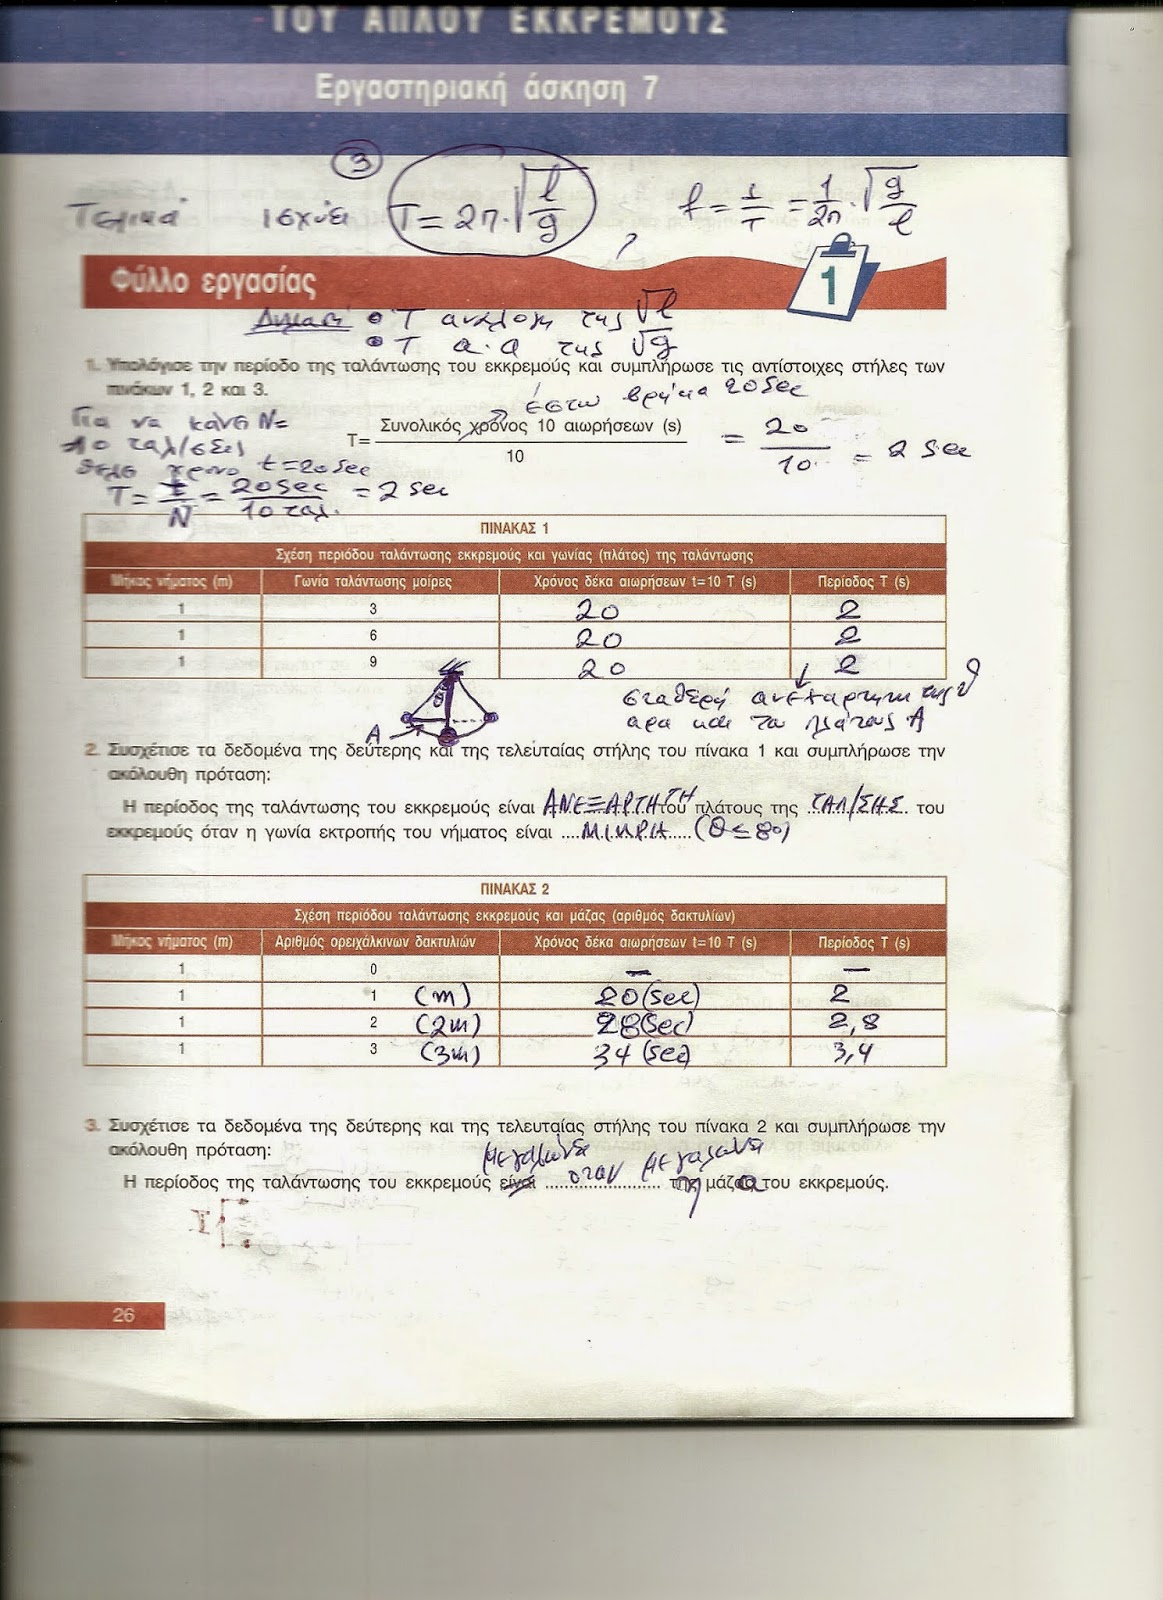 ΤΟΥ ΑΠΛΟΥ ΕΚΚΡΕΜΟΥΣ
Εργαστηριακή άσκηση 7
③
Τελικά ισχύει T = 2π·√(l/g) , f = 1/T = 1/2π · √(g/l)
Φύλλο εργασίας
1
Δηλαδή • T ανάλογη της √l
• T α.α της √g
1. Υπολόγισε την περίοδο της ταλάντωσης του εκκρεμούς και συμπλήρωσε τις αντίστοιχες στήλες των
πινάκων 1, 2 και 3.
έστω βρήκα 20sec
Για να κάνει N=
10 ταλ/σεις
θέλει χρόνο t=20sec
T = t/N = 20sec/10ταλ. = 2 sec
T= Συνολικός χρόνος 10 αιωρήσεων (s) / 10 = 20/10 = 2 sec
ΠΙΝΑΚΑΣ 1
Σχέση περιόδου ταλάντωσης εκκρεμούς και γωνίας (πλάτος) της ταλάντωσης
Μήκος νήματος (m) Γωνία ταλάντωσης μοίρες Χρόνος δέκα αιωρήσεων t=10 T (s) Περίοδος T (s)
1 3 20 2
1 6 20 2
1 9 20 2
σταθερή ανεξάρτητη της θ
άρα και του πλάτους A
A
2. Συσχέτισε τα δεδομένα της δεύτερης και της τελευταίας στήλης του πίνακα 1 και συμπλήρωσε την
ακόλουθη πρόταση:
Η περίοδος της ταλάντωσης του εκκρεμούς είναι ΑΝΕΞΑΡΤΗΤΗ του πλάτους της ΤΑΛ/ΣΗΣ του
εκκρεμούς όταν η γωνία εκτροπής του νήματος είναι ....ΜΙΚΡΗ.....(θ≤8°)
ΠΙΝΑΚΑΣ 2
Σχέση περιόδου ταλάντωσης εκκρεμούς και μάζας (αριθμός δακτυλίων)
Μήκος νήματος (m) Αριθμός ορειχάλκινων δακτυλιών Χρόνος δέκα αιωρήσεων t=10 T (s) Περίοδος T (s)
1 0 — —
1 1 (m) 20(sec) 2
1 2 (2m) 28(sec) 2,8
1 3 (3m) 34 (sec) 3,4
3. Συσχέτισε τα δεδομένα της δεύτερης και της τελευταίας στήλης του πίνακα 2 και συμπλήρωσε την
ακόλουθη πρόταση:
μεγαλώνει μεγαλώνει
Η περίοδος της ταλάντωσης του εκκρεμούς είναι ....όταν.... η μάζα του εκκρεμούς.
26